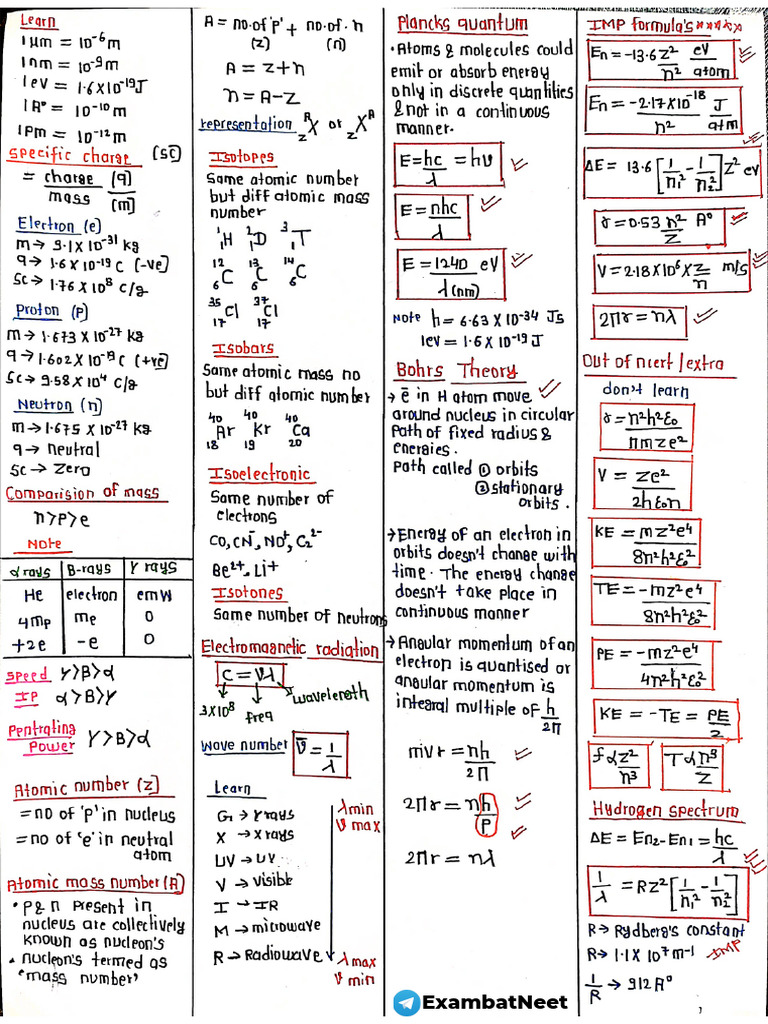 Learn
1 µm = 10⁻⁶m
1 nm = 10⁻⁹m
1 eV = 1.6X10⁻¹⁹J
1 A° = 10⁻¹⁰m
1 Pm = 10⁻¹²m
Specific charge (sc)
= charge (q)
mass (m)
Electron (e)
m → 9.1 X 10⁻³¹ kg
q → 1.6 X 10⁻¹⁹ C (-ve)
SC → 1.76 X 10⁸ C/g
Proton (P)
m → 1.673 X 10⁻²⁷ kg
q → 1.602 X 10⁻¹⁹ C (+ve)
SC → 9.58 X 10⁴ C/g
Neutron (n)
m → 1.675 X 10⁻²⁷ kg
q → neutral
SC → Zero
Comparision of mass
n > P > e
Note
α rays | B-rays | γ rays
He | electron | emw
4mp | me | 0
+2e | -e | 0
Speed γ>B>α
IP α>B>γ
Pentrating
Power γ>B>α
Atomic number (z)
= no of 'p' in nucleus
= no of 'e' in neutral
atom
Atomic mass number (A)
• P & n present in
nucleus are collectively
known as nucleon's
• nucleon's termed as
'mass number'
A = no.of 'p' + no.of.n
(z) (n)
A = z+n
n = A-Z
representation ᴬzX or zXᴬ
Isotopes
Same atomic number
but diff atomic mass
number
¹₁H ²₁D ³₁T
¹²₆C ¹³₆C ¹⁴₆C
³⁵₁₇Cl ³⁷₁₇Cl
Isobars
Same atomic mass no
but diff atomic number
⁴⁰₁₈Ar ⁴⁰₁₉Kr ⁴⁰₂₀Ca
Isoelectronic
Same number of
electrons
CO, CN⁻, NO⁺, C₂²⁻
Be²⁺, Li⁺
Isotones
Same number of neutrons
Electromagnetic radiation
C = νλ
wavelength
3X10⁸ freq
Wave number ν̄ = 1/λ
Learn
G → γ rays
X → X rays
UV → UV
V → visible
I → IR
M → microwave
R → Radiowave
λ min
ν max
λ max
ν min
Plancks quantum
• Atoms & molecules could
emit or absorb energy
only in discrete quantities
& not in a continuous
manner.
E = hc/λ = hν
E = nhc/λ
E = 1240/λ(nm) eV
Note h = 6.63 X 10⁻³⁴ Js
1ev = 1.6 X 10⁻¹⁹ J
Bohrs Theory
→ ē in H atom move
around nucleus in circular
Path of fixed radius &
energies.
Path called ① orbits
② stationary
orbits.
→ Energy of an electron in
orbits doesn't change with
time. The energy change
doesn't take place in
continuous manner
→ Angular momentum of an
electron is quantised or
angular momentum is
integral multiple of h/2Π
mvr = nh/2Π
2Πr = nh/P
2Πr = nλ
IMP formula's *****
En = -13.6z²/n² eV/atom
En = -2.17X10⁻¹⁸/n² J/atm
ΔE = 13.6 [1/n₁² - 1/n₂²] Z² eV
r = 0.53 n²/Z A°
V = 2.18 X 10⁶ X z/n m/s
2Πr = nλ
Out of ncert / extra
don't learn
r = n²h²ε₀/Πmze²
V = Ze²/2hε₀n
KE = mz²e⁴/8n²h²ε₀²
TE = -mz²e⁴/8n²h²ε₀²
PE = -mz²e⁴/4n²h²ε₀²
KE = -TE = PE/2
f α z²/n³ T α n³/z
Hydrogen spectrum
ΔE = En₂ - En₁ = hc/λ
1/λ = RZ² [1/n₁² - 1/n₂²]
R → Rydberg's constant
R → 1.1X 10⁷ m⁻¹ → IMP
1/R → 912 A°
ExambatNeet